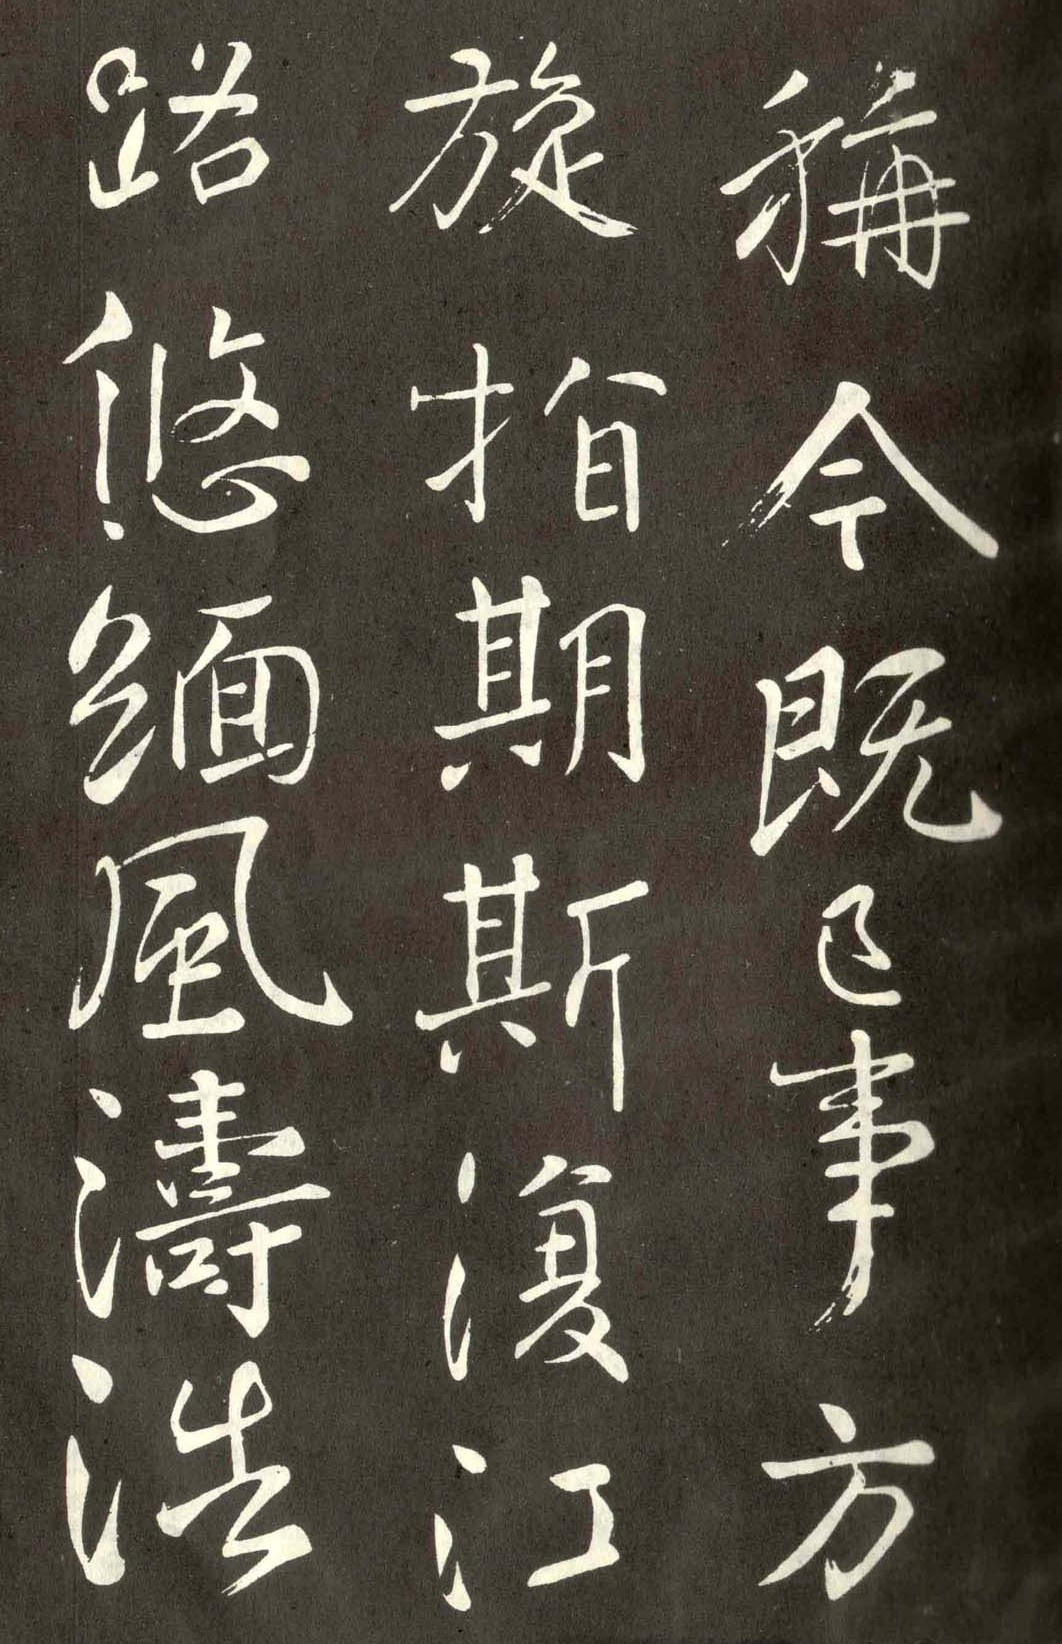 稱今既已事方
旋指期斯復江
路悠緬風濤浩